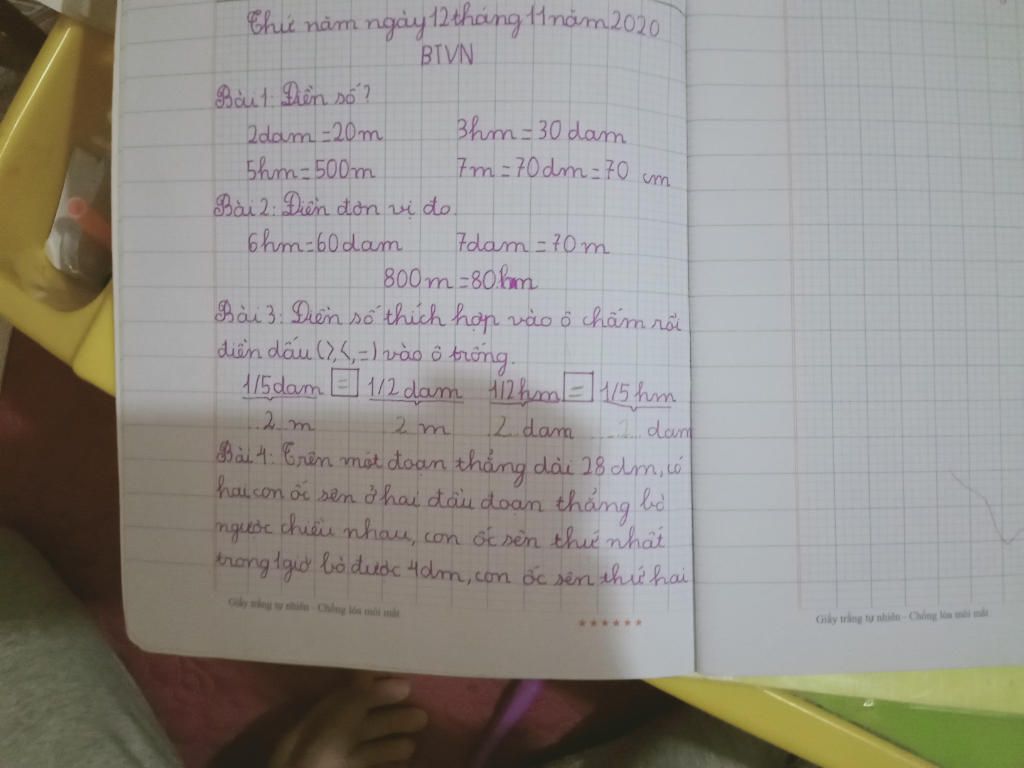 Thứ năm ngày 12 tháng 11 năm 2020
BTVN
Bài 1: Điền số?
2dam = 20 m 3hm = 30 dam
5hm = 500m 7m = 70dm = 70 cm
Bài 2: Điền đơn vị đo.
6hm = 60 dam 7dam = 70 m
800 m = 80 hm
Bài 3: Điền số thích hợp vào ô chấm rồi
điền dấu (>, <, =) vào ô trống.
1/5 dam = 1/2 dam 1/2 hm = 1/5 hm
2 m 2 m 2 dam 2 dam
Bài 4: Trên một đoạn thẳng dài 28 dm, có
hai con ốc sên ở hai đầu đoạn thẳng bò
ngược chiều nhau, con ốc sên thứ nhất
trong 1 giờ bò được 4dm, con ốc sên thứ hai
Giấy trắng tự nhiên - Chống lóa mỏi mắt
Giấy trắng tự nhiên - Chống lóa mỏi mắt